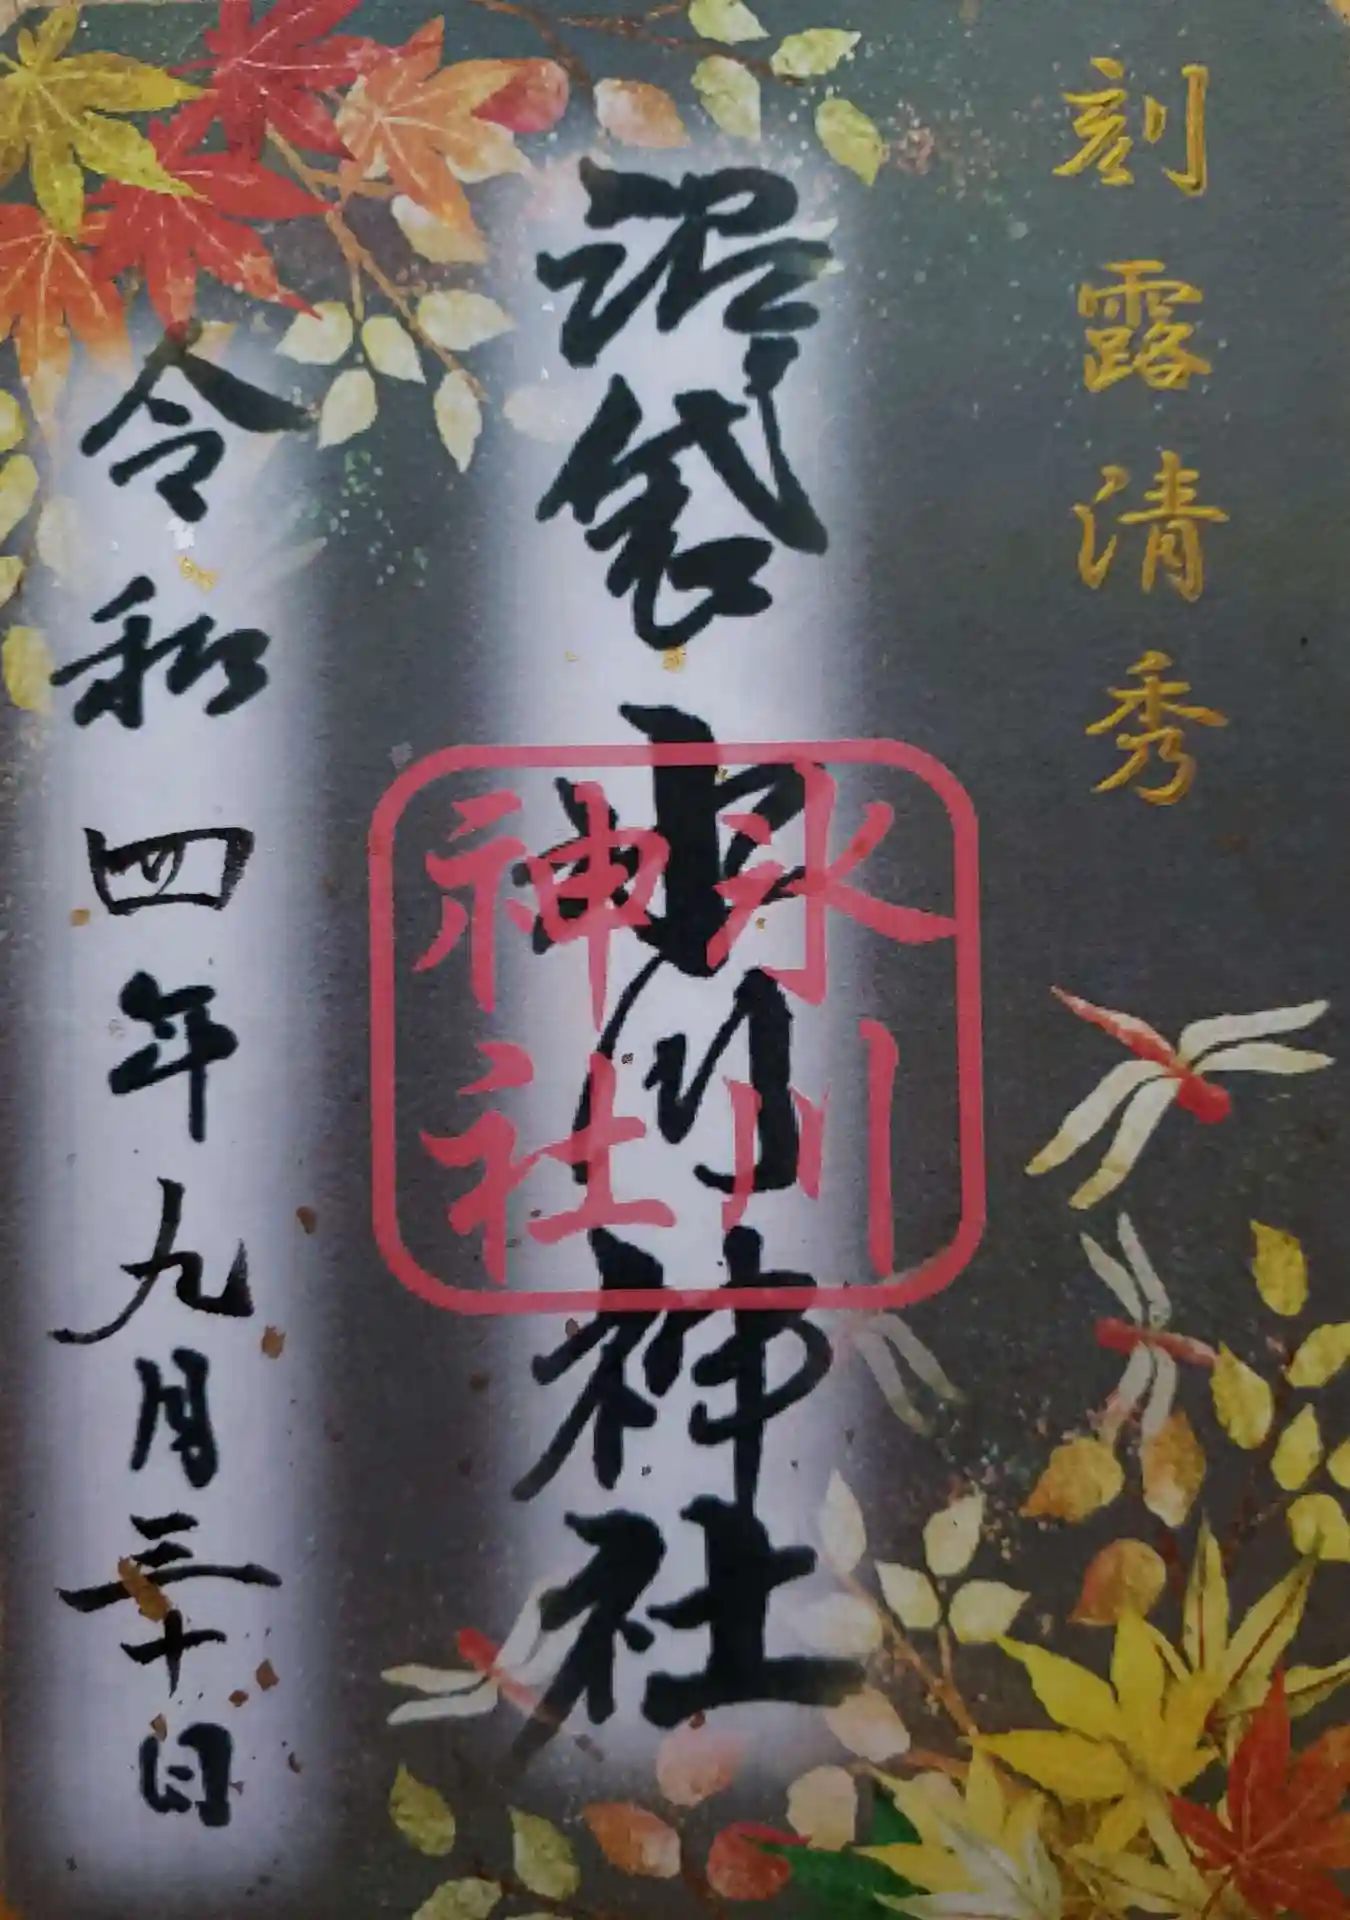 刻露清秀
沼袋氷川神社
氷川
神社
令和四年九月三十日